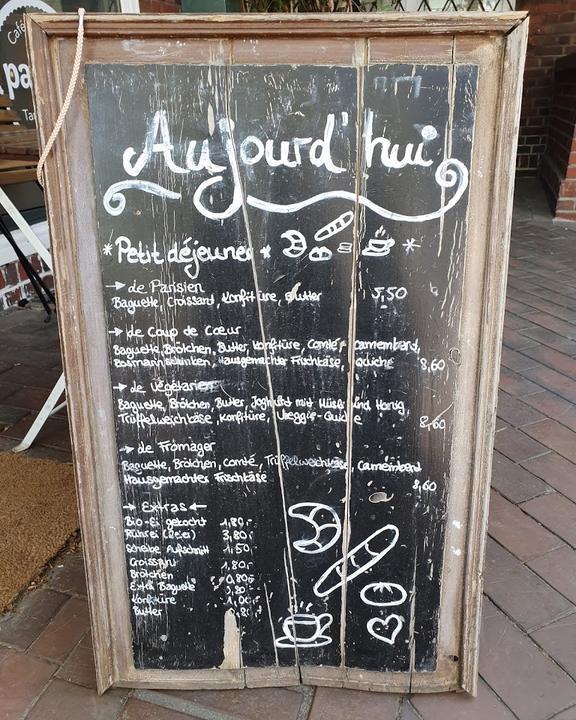 Café
pa
Ta
Aujourd'hui
* Petit déjeuner * *
→ de Parisien
Baguette, Croissant, Konfitüre, Butter 5,50
→ de Coup de Cœur
Baguette, Brötchen, Butter, Konfitüre, Comté, Camembert,
schinken, Hausgemachter Frischkäse, Quiche 8,60
→ de Végétarien
Baguette, Brötchen, Butter, Joghurt mit Müsli und Honig,
Trüffelweichkäse, Konfitüre, Veggie-Quiche 8,60
→ de Fromager
Baguette, Brötchen, Comté, Trüffelweichkäse, Camembert
Hausgemachter Frischkäse 8,60
→ Extras ←
Bio-Ei gekocht 1,80.-
Rührei (2 Eier) 3,80.-
Scheibe Aufschnitt 1,50.-
Croissant 1,80.-
Brötchen 0,80.-
Extra Baguette
Konfitüre 1,00.-
Butter